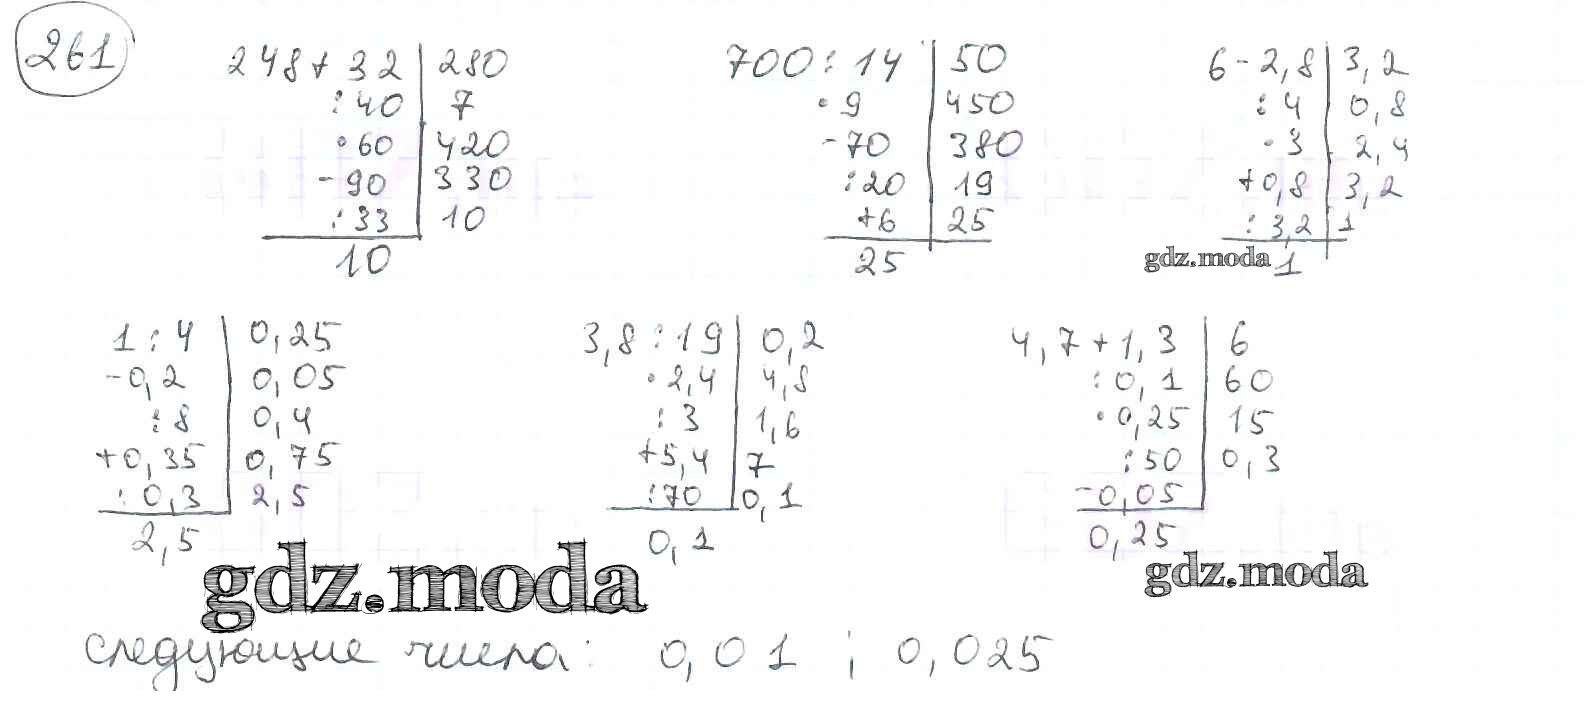 261
248 + 32 | 280
: 40 | 7
· 60 | 420
- 90 | 330
: 33 | 10
10
700 : 14 | 50
· 9 | 450
- 70 | 380
: 20 | 19
+ 6 | 25
25
6 - 2,8 | 3,2
: 4 | 0,8
· 3 | 2,4
+ 0,8 | 3,2
: 3,2 | 1
1
gdz.moda
1 : 4 | 0,25
- 0,2 | 0,05
: 8 | 0,4
+ 0,35 | 0,75
: 0,3 | 2,5
2,5
3,8 : 19 | 0,2
· 2,4 | 4,8
: 3 | 1,6
+ 5,4 | 7
: 70 | 0,1
0,1
4,7 + 1,3 | 6
: 0,1 | 60
· 0,25 | 15
: 50 | 0,3
- 0,05
0,25
gdz.moda
gdz.moda
следующие числа: 0,01 ; 0,025